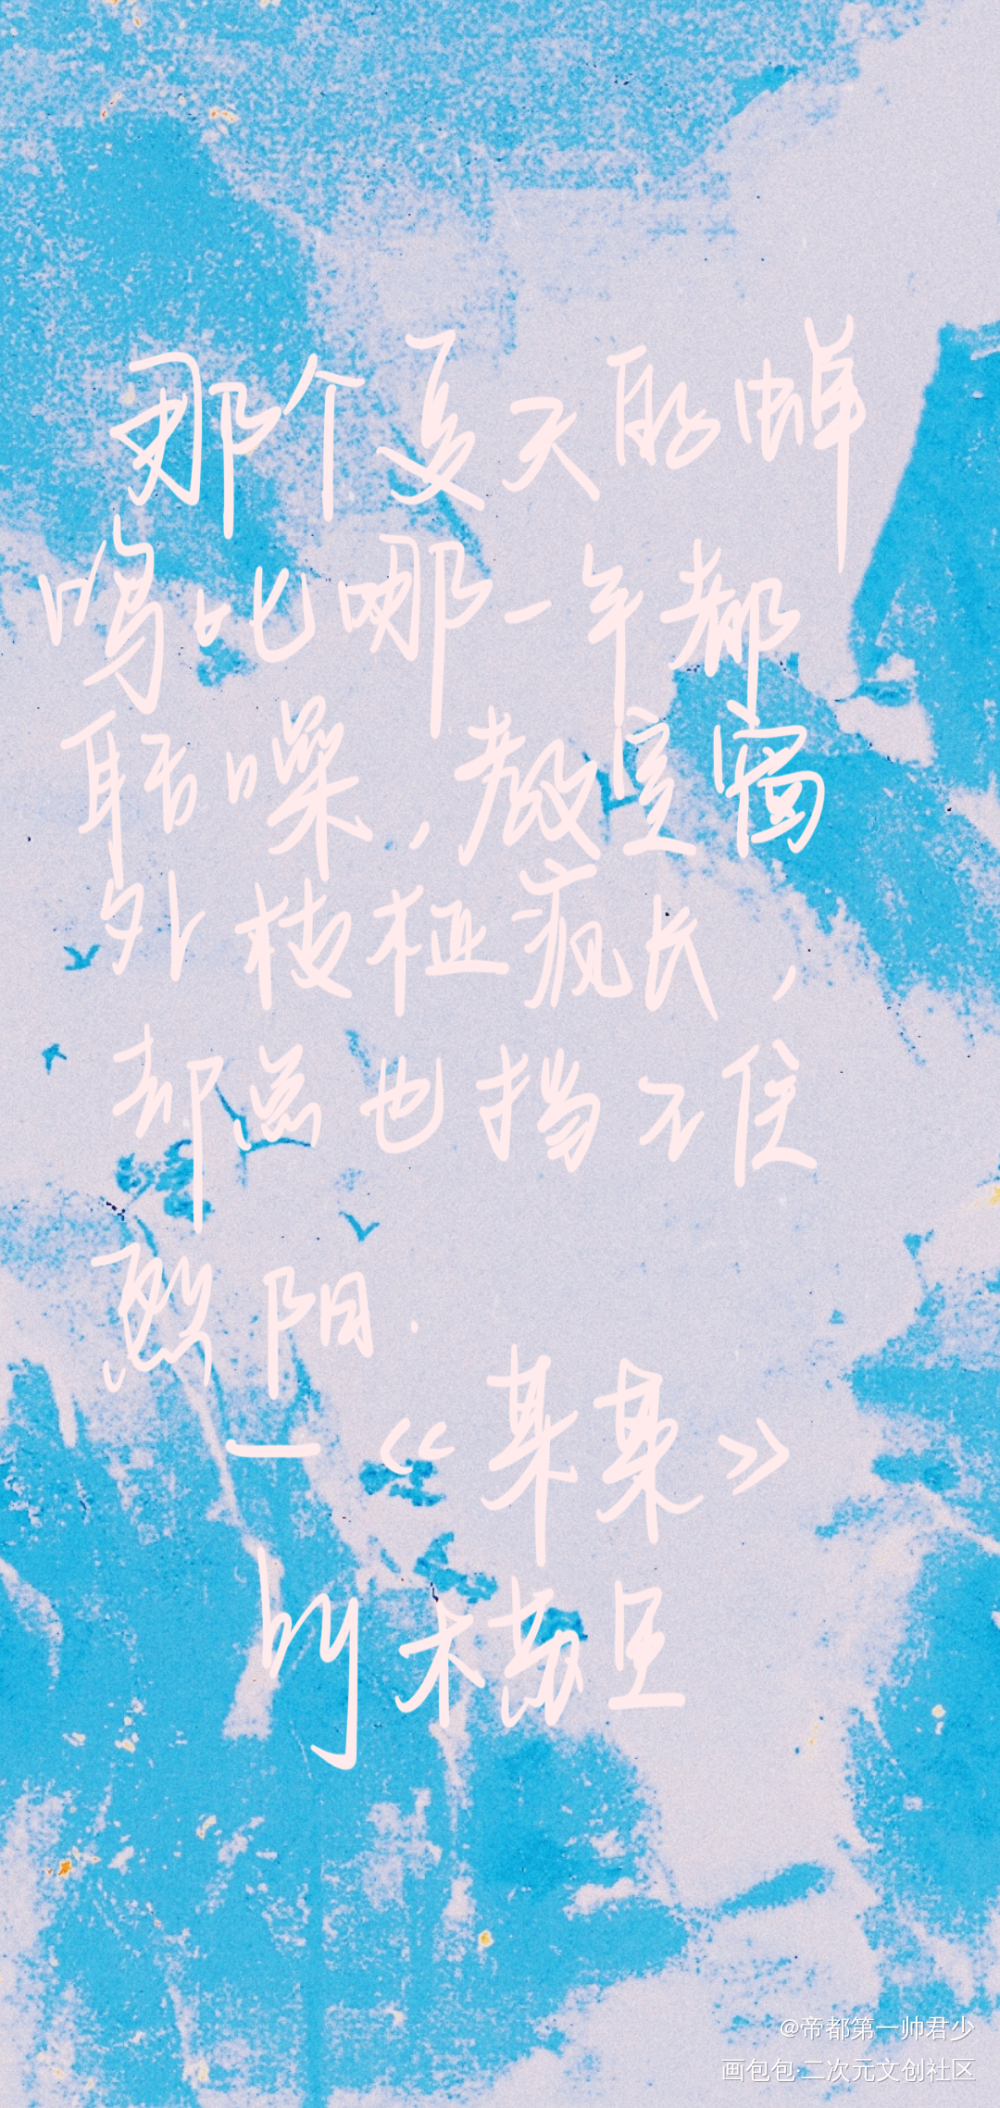 那个夏天的蝉
鸣比哪一年都
聒噪,教室窗
外枝桠疯长,
却总也挡不住
烈阳.
—《某某》
by木苏里
@帝都第一帅君少
画包包·二次元文创社区